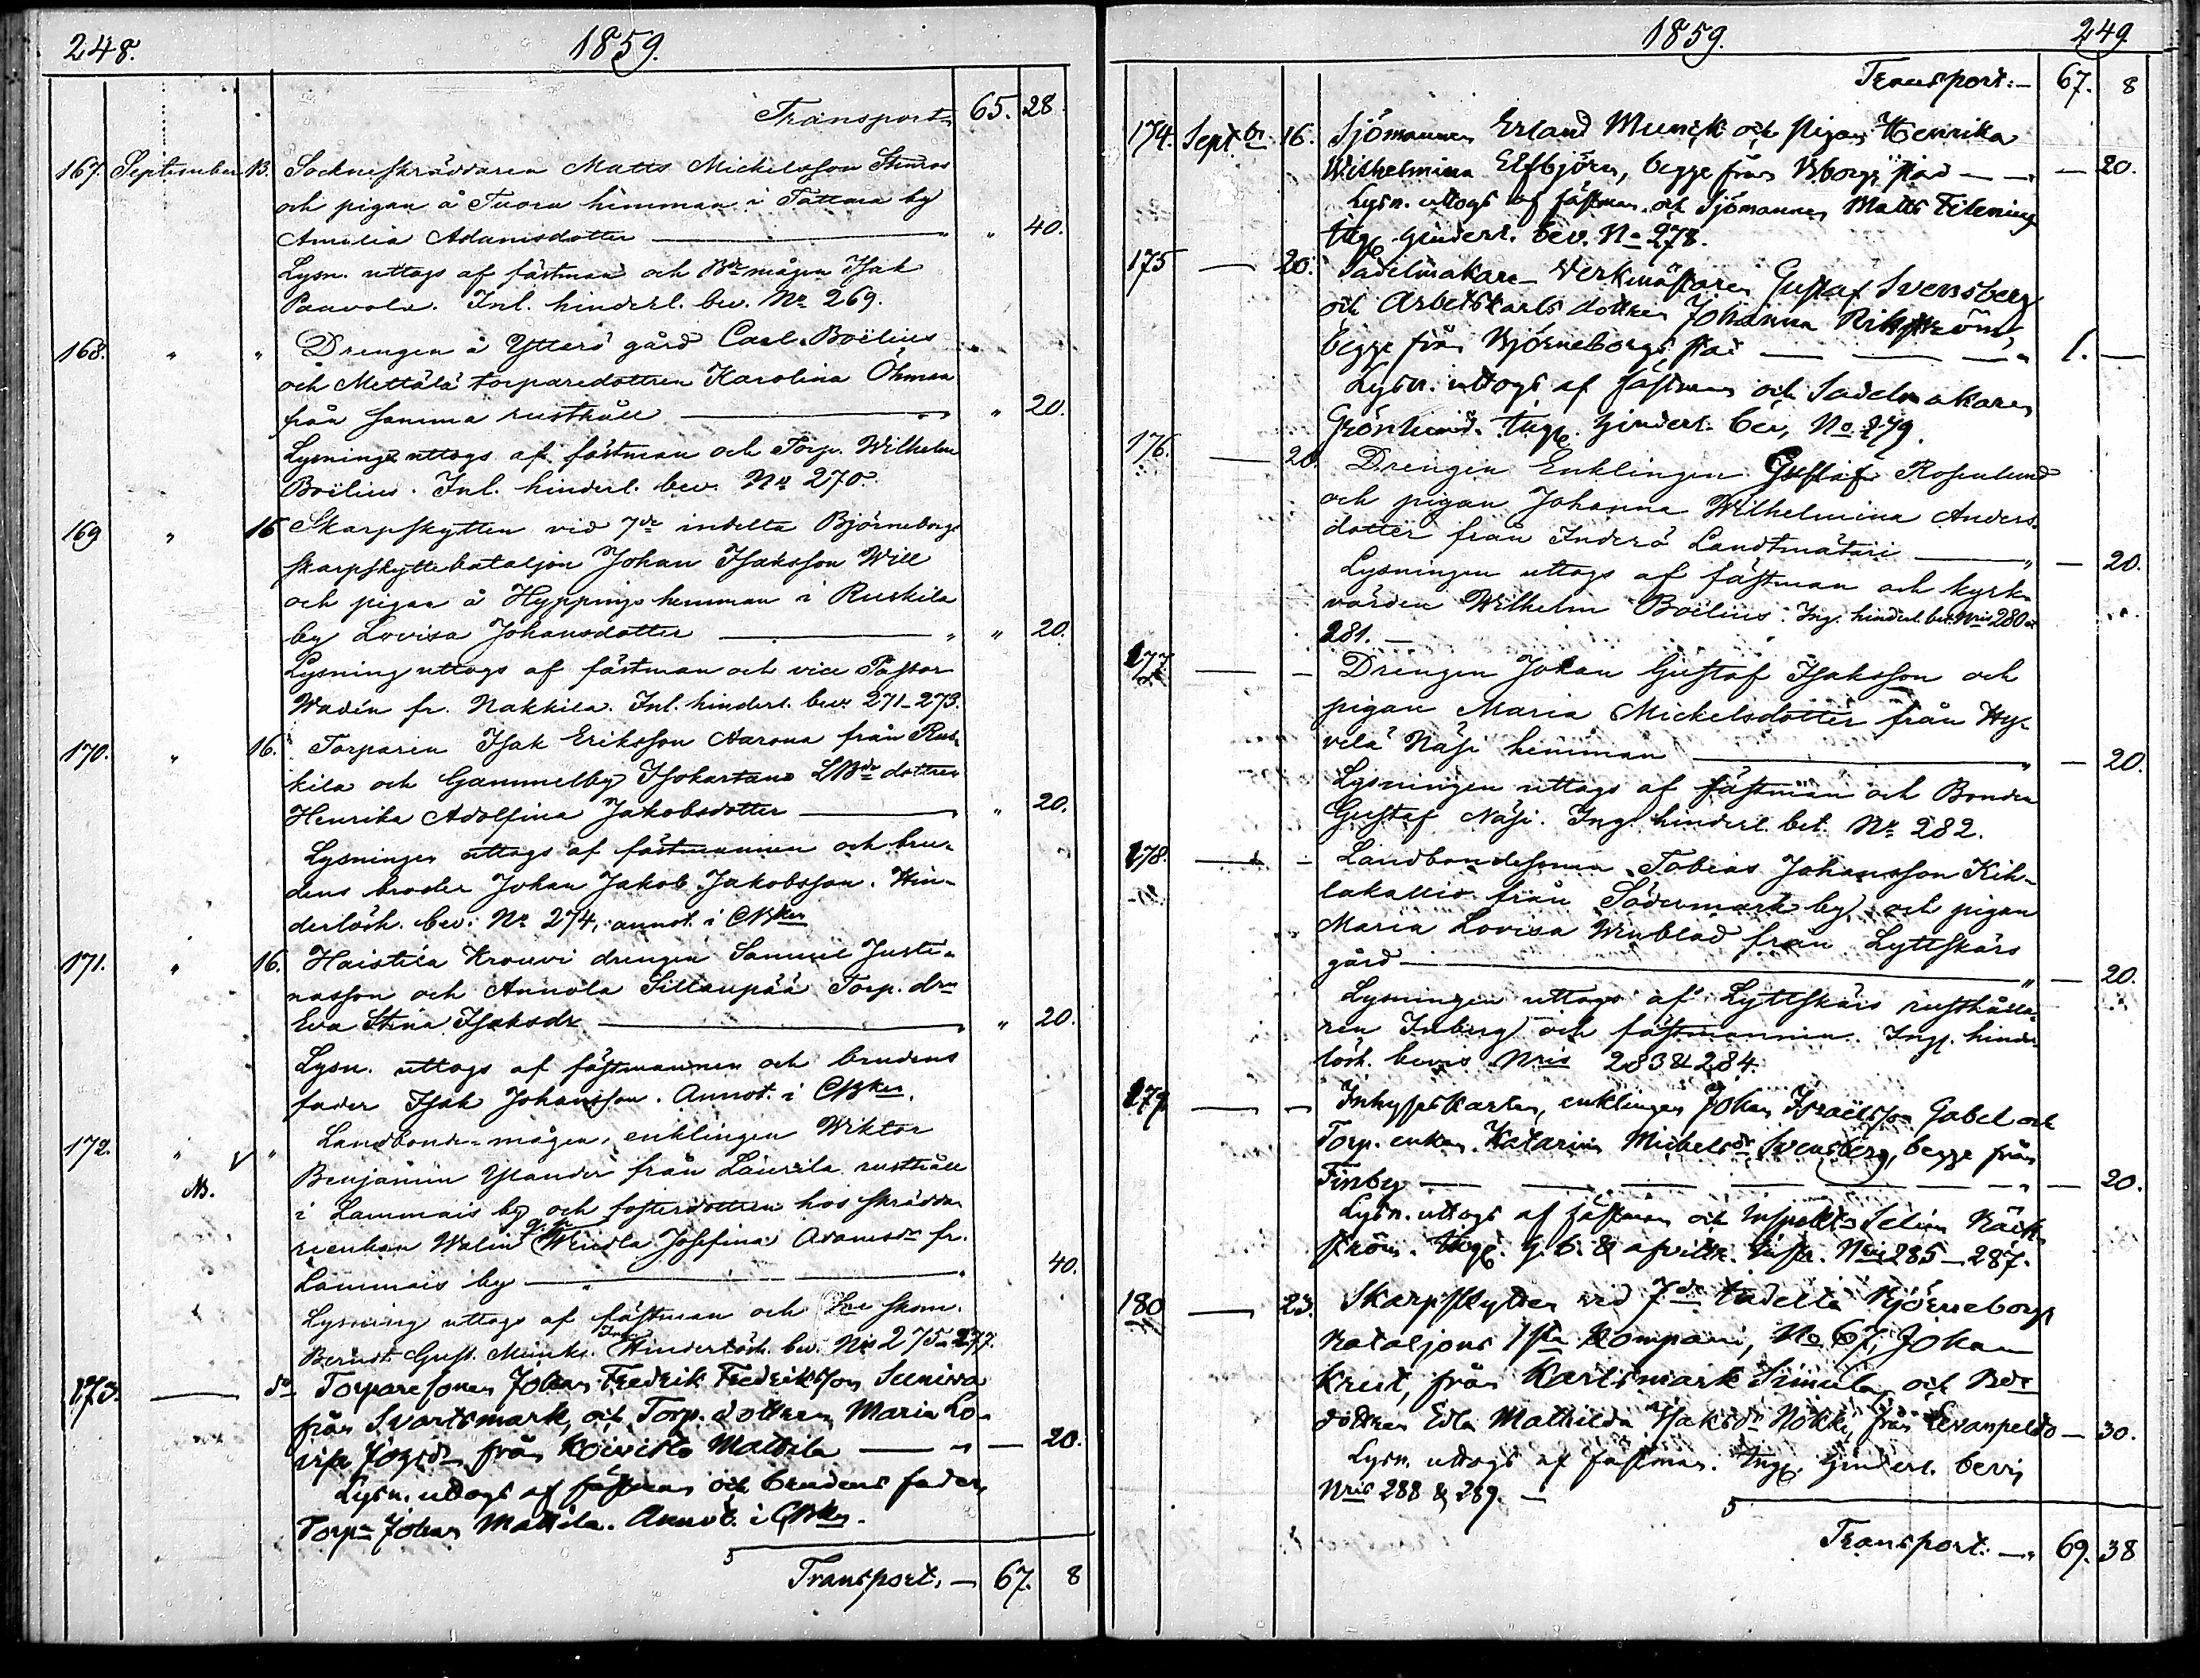 248. 1859.
Transport 65. 28.
167. September 13. Sockneskräddaren Matts Mickelsson Stenros
och pigan å Tuoru hemman i Tattara by
Amalia Adamsdotter " " 40.
Lysn. uttogs af fästman och Bde mågen Isak
Paavola. Inl. hinderl. bev. No 269.
168. " " Drengen å Ytterö gård Carl Boëlius
och Mettälä torparedottren Karolina Öhman
från samma rusthåll " " 20.
Lysning uttogs af fästman och Torp. Wilhelm
Boëlius. Inl. hinderl. bev. No 270.
169 " 16 Skarpskytten vid 7de indelta Björneborgs
skarpskyttebataljon Johan Isaksson Will
och pigan å Hyppings hemman i Ruskila
by Lovisa Johansdotter " " 20.
Lysning uttogs af fästman och vice Pastor
Wadén fr. Nakkila. Inl. hinderl. bev. 271-273.
170. " 16. Torparen Isak Eriksson Narona från Rus-
kila och Gammelby Isokartano LBde dottren
Henrika Adolfina Jakobsdotter " 20.
Lysningen uttogs af fästmannen och bru-
dens broder Johan Jakob Jakobsson. Hin-
derlösh. bev. No 274, annot. i CBken
171. " 16. Haistila Krouvi drengen Samuel Juste-
nasson och Annola Sillanpää Torp. drn
Eva Stina Isaksdr " " 20.
Lysn. uttogs af fästmannen och brudens
fader Isak Johansson. Annot. i CBken.
172. " V " Landbonde-mågen, enklingen Wiktor
NB. Benjamin Ylander från Laurila rusthåll
i Lammais by och fosterdottren hos skrädda-
rienkan Walin Wendla Josefina Adamsdr fr.
Lammais by " " 40.
Lysning uttogs af fästman och skom.
Berndt Gust. Munk. Hinderlösh. bev. No 275-277.
173. — do Torparesonen Johan Fredrik Fredriksson
från Svartsmark, och Torp. dottren Maria Lo-
visa från Koivisto Mattila — " — 20.
Lysn. uttogs af fästman och brudens fader,
Torpn Johan Mattila. Annot. i CBken.
Transport. — 67. 8
1859. 249.
Transport. — 67. 8
174. Septbr 16. Sjömannen Erland Munck och Pigan Henrika
Wilhelmina Elfbjörn, begge från Bborgs stad — — — 20.
Lysn. uttogs af fästman och Sjömannen Matts
Ingg. hinderl. bev. No 278.
175 — 20. Sadelmakare-Verkmästaren Gustaf Svensberg
och Arbetskarls dottren Johanna Rikström,
begge från Björneborgs stad — — " 1. —
Lysn. uttogs af fästman och Sadelmakaren
Grönlund. Ingg. hinderl. bev. No 279.
176. — 20. Drengen Enklingen Gustaf Rosenlund
och pigan Johanna Wilhelmina Anders-
dotter från Inderö Landtmäteri " — 20.
Lysningen uttogs af fästman och kyrk-
värden Wilhelm Boëlius. Ing. hinderl. bev. Nris 280 o
281. —
177. — - Drengen Johan Gustaf Isaksson och
pigan Maria Mickelsdotter från Hy-
velä Näsi hemman " — 20.
Lysningen uttogs af fästman och Bonden
Gustaf Näsi. Ing. hinderl. bet. No 282.
178. — - Landbondesonen Tobias Johansson Kih-
lakallio från Södermark by och pigan
Maria Lovisa Winblad från Lyttskärs
gård " — 20.
Lysningen uttogs af Lyttskärs rusthålla-
ren Inberg och fästmannen. Ingg. hinder-
lösh. bevis Nris 283 & 284.
179. — - Inhyseskarlen, enklingen Johan Israëlsson Gabel och
Torp. enkan Katarina Michelsdr Svensberg, begge från
Finby — — — — — " — 20.
Lysn. uttogs af fästman och Inspektor Selim Käck-
ström. Ingg. h. b. & Nris 285-287.
180 — 23. Skarpskytten vid 7de Indelta Björneborgs
Bataljons 1sta Kompani, No 67, Johan
Krut, från Kartsmark Simula, och Bde
dottren Edla Mathilda Isaksdr Nokka, från Levanpelto — 30.
Lysn. uttogs af fästman. Ingg. hinderl. bevis
Nris 288 & 289. —
Transport. — 69. 38